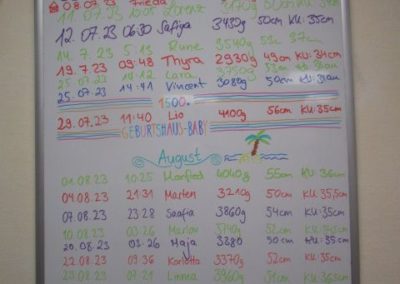 08.07.23 Frieda
11.07.23 10:05 Lorenz
12.07.23 0630 Safiya 3430g 50cm KU:35cm
14.7.23 5:13 Rune 3540g 53cm 37cm
19.7.23 09:48 Thyra 2930g 49cm KU:34cm
Lara
25.07.23 14:41 Vincent 3080g 50cm
1500.
29.07.23 11:40 Lio 4100g 56cm KU:35cm
GEBURTSHAUS-BABY
August
01.08.23 10:25 Manfred 4040g 55cm KU:36cm
04.08.23 21:31 Marten 3210g 50cm KU:35,5cm
07.08.23 23:28 Saafia 3860g 54cm KU:35cm
10.08.23 03:26 52cm
20.08.23 03.26 Maja 3380 50cm KU:35cm
22.08.23 Karlotta 3370g 52cm KU:35cm
23.08.23 Linnea 3960g